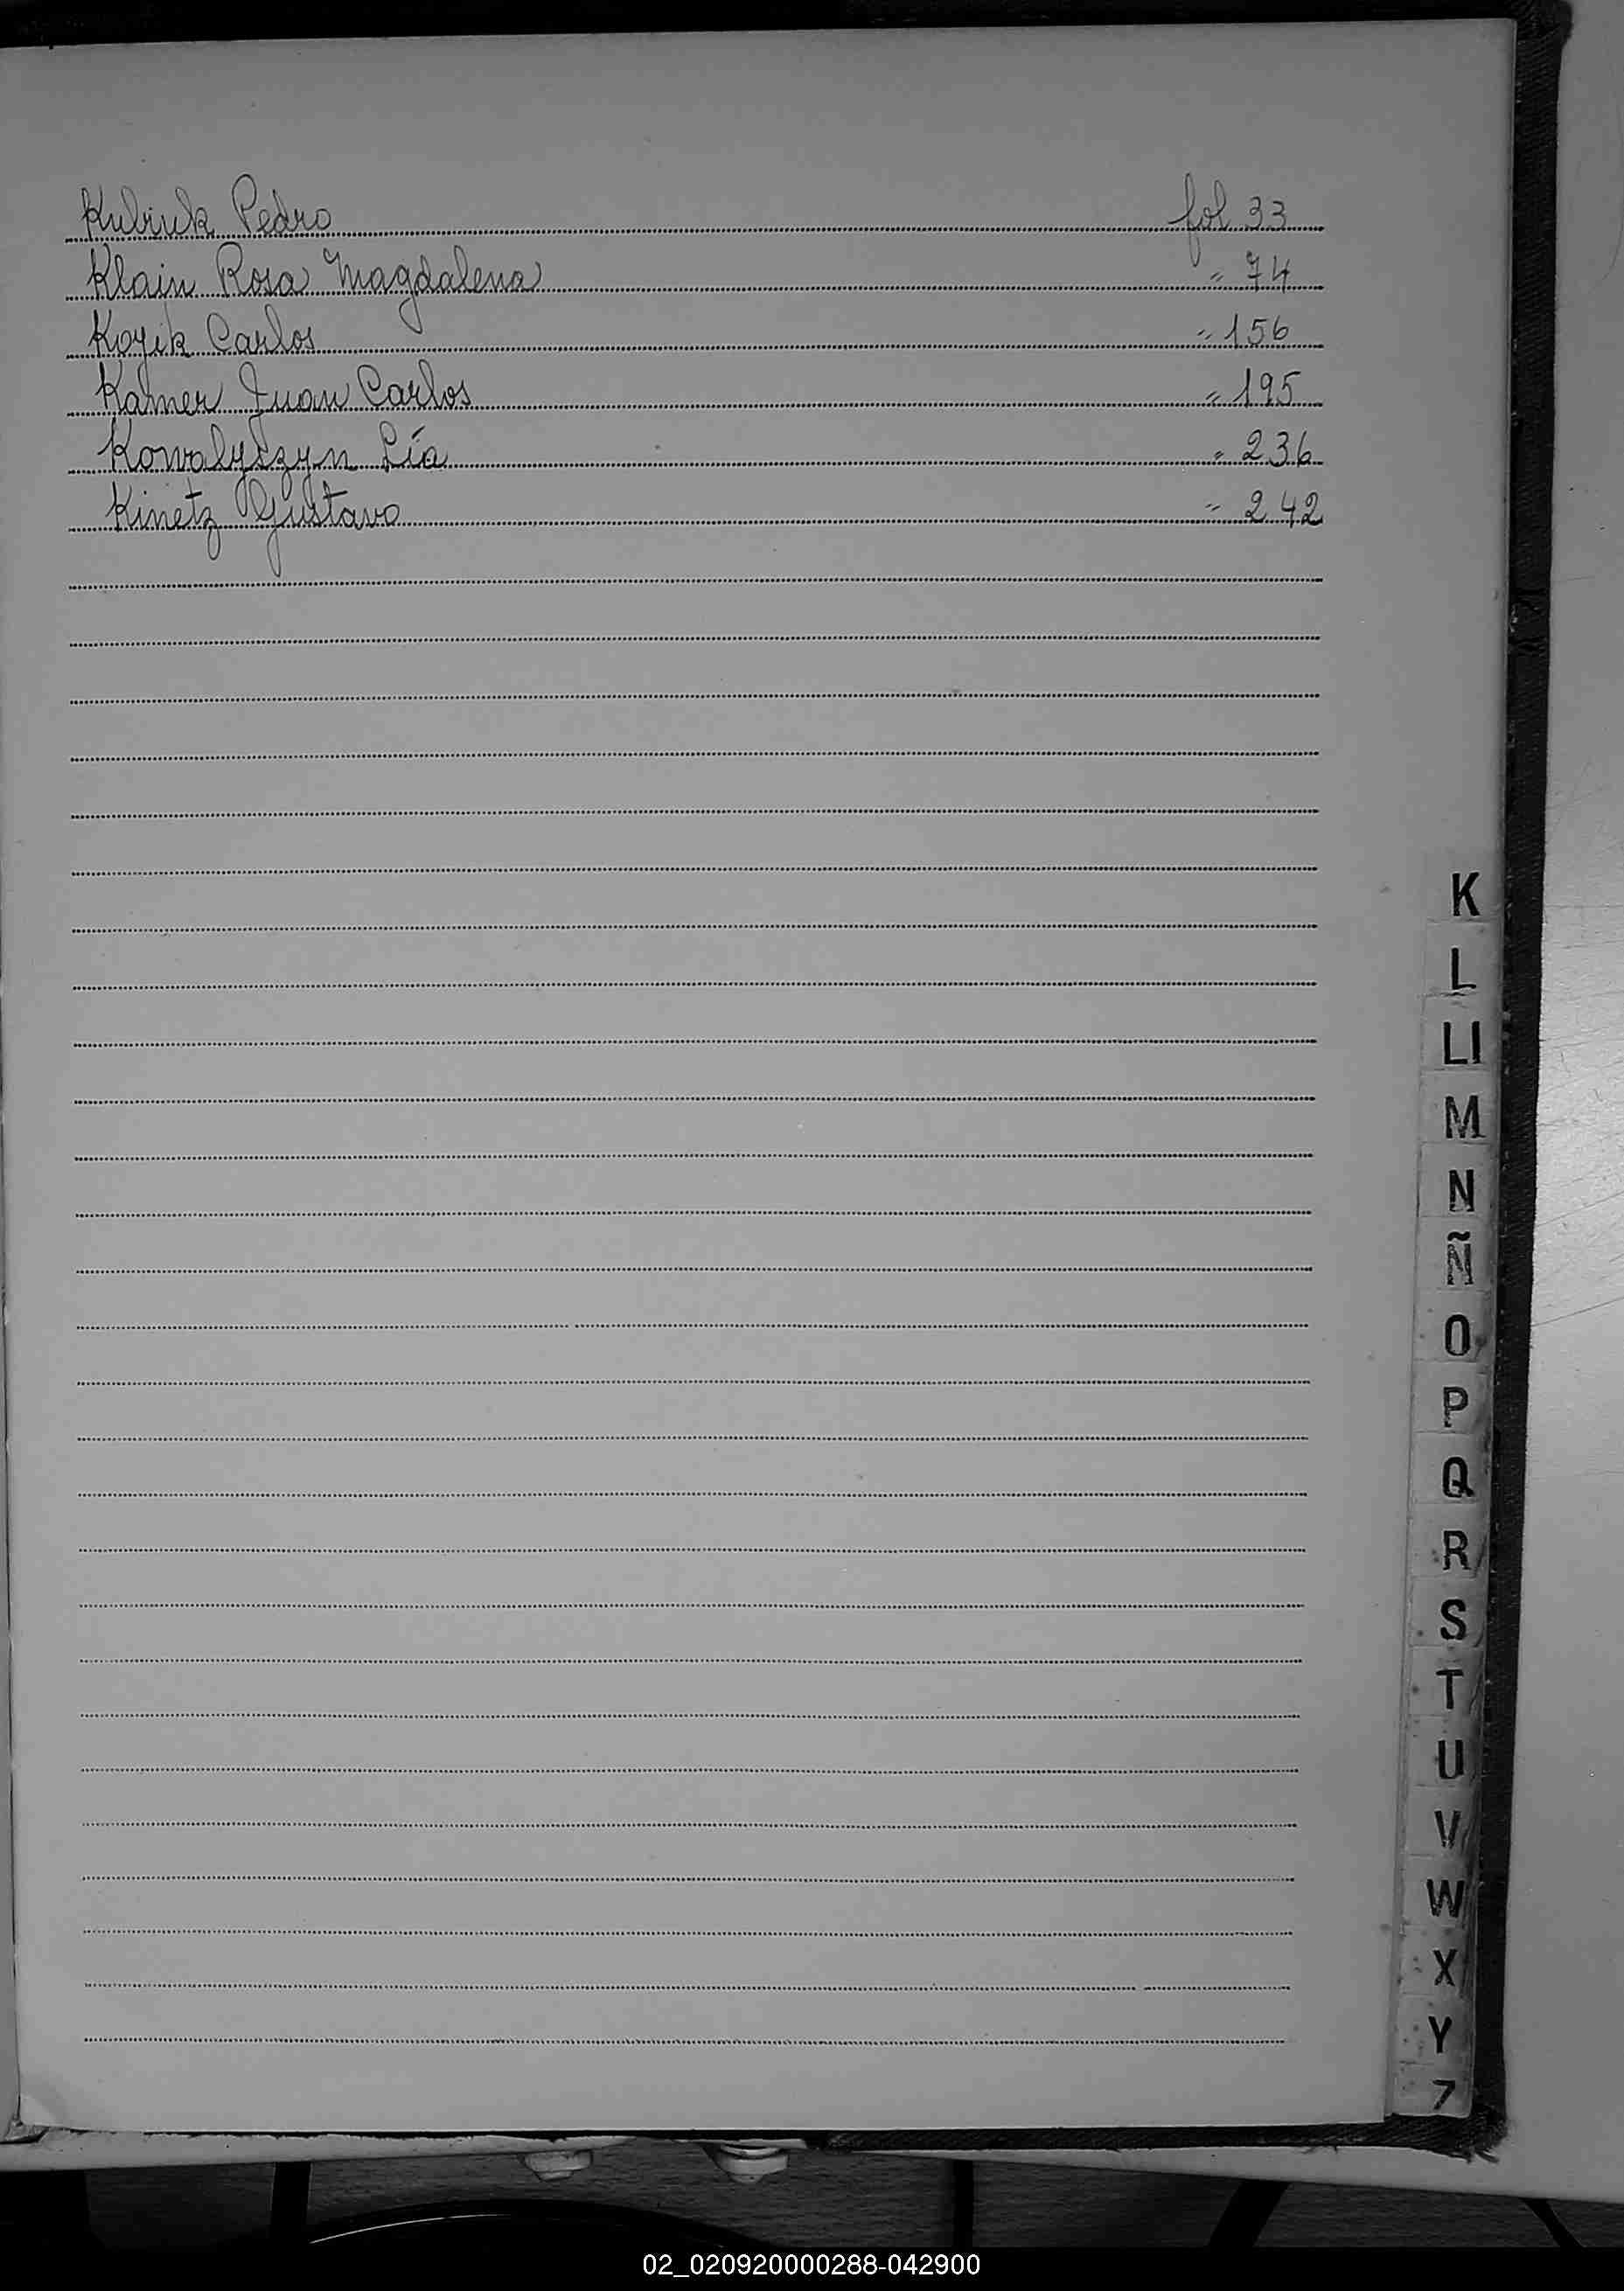 Kubiuk Pedro fol 33
Klain Rosa Magdalena " 74
Koyik Carlos " 156
Kamer Juan Carlos " 195
Kowalyszyn Lía " 236
Kinetz Gustavo " 242
K
L
Ll
M
N
Ñ
O
P
Q
R
S
T
U
V
W
X
Y
Z
02_020920000288-042900